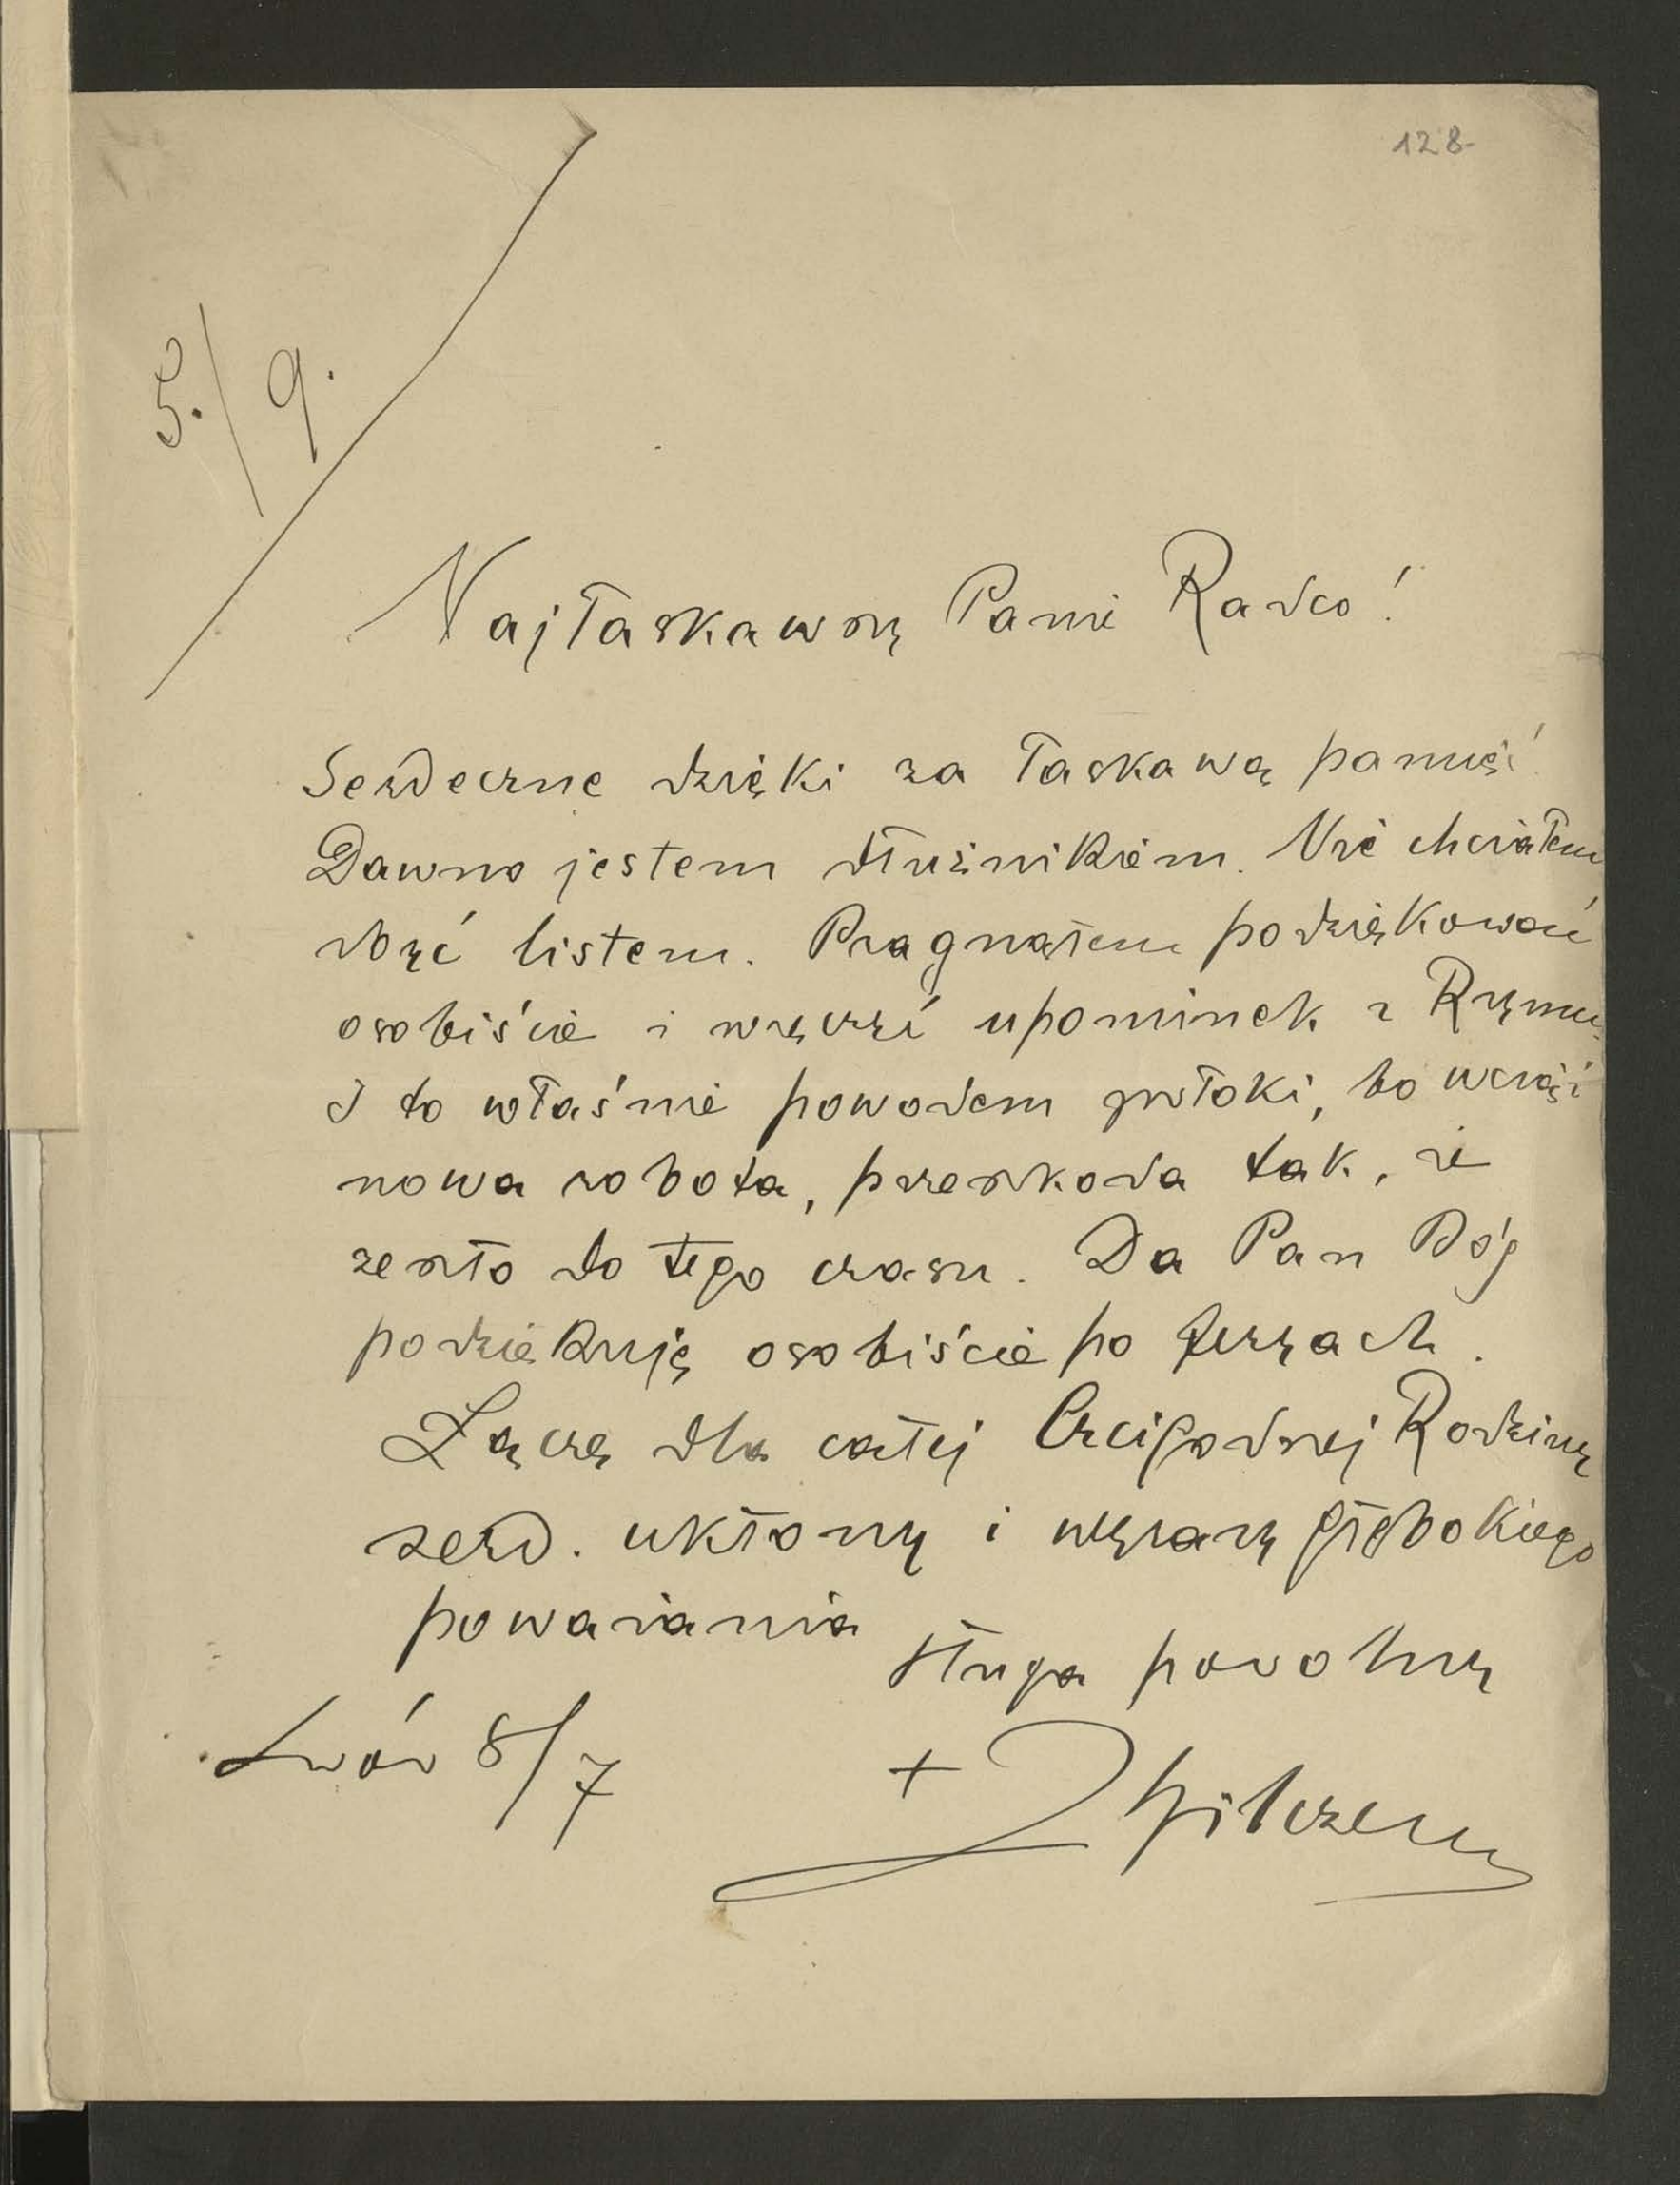 128
5./9.
Najłaskawszy Panie Radco!
Serdeczne dzięki za łaskawą pamięć
Dawno jestem dłużnikiem. Nie chciałem
zbyć listem. Pragnąłem podziękować
osobiście i wręczyć upominek z Rzymu.
I to właśnie powodem zwłoki, bo wciąż
nowa robota, przeszkoda tak, że
zeszło do tego czasu. Da Pan Bóg
podziękuję osobiście po feryach.
Łączę dla całej Czcigodnej Rodziny
serd. ukłony i wyrazy głębokiego
poważania
sługa powolny
Lwów 8/7
+ Bilczewski